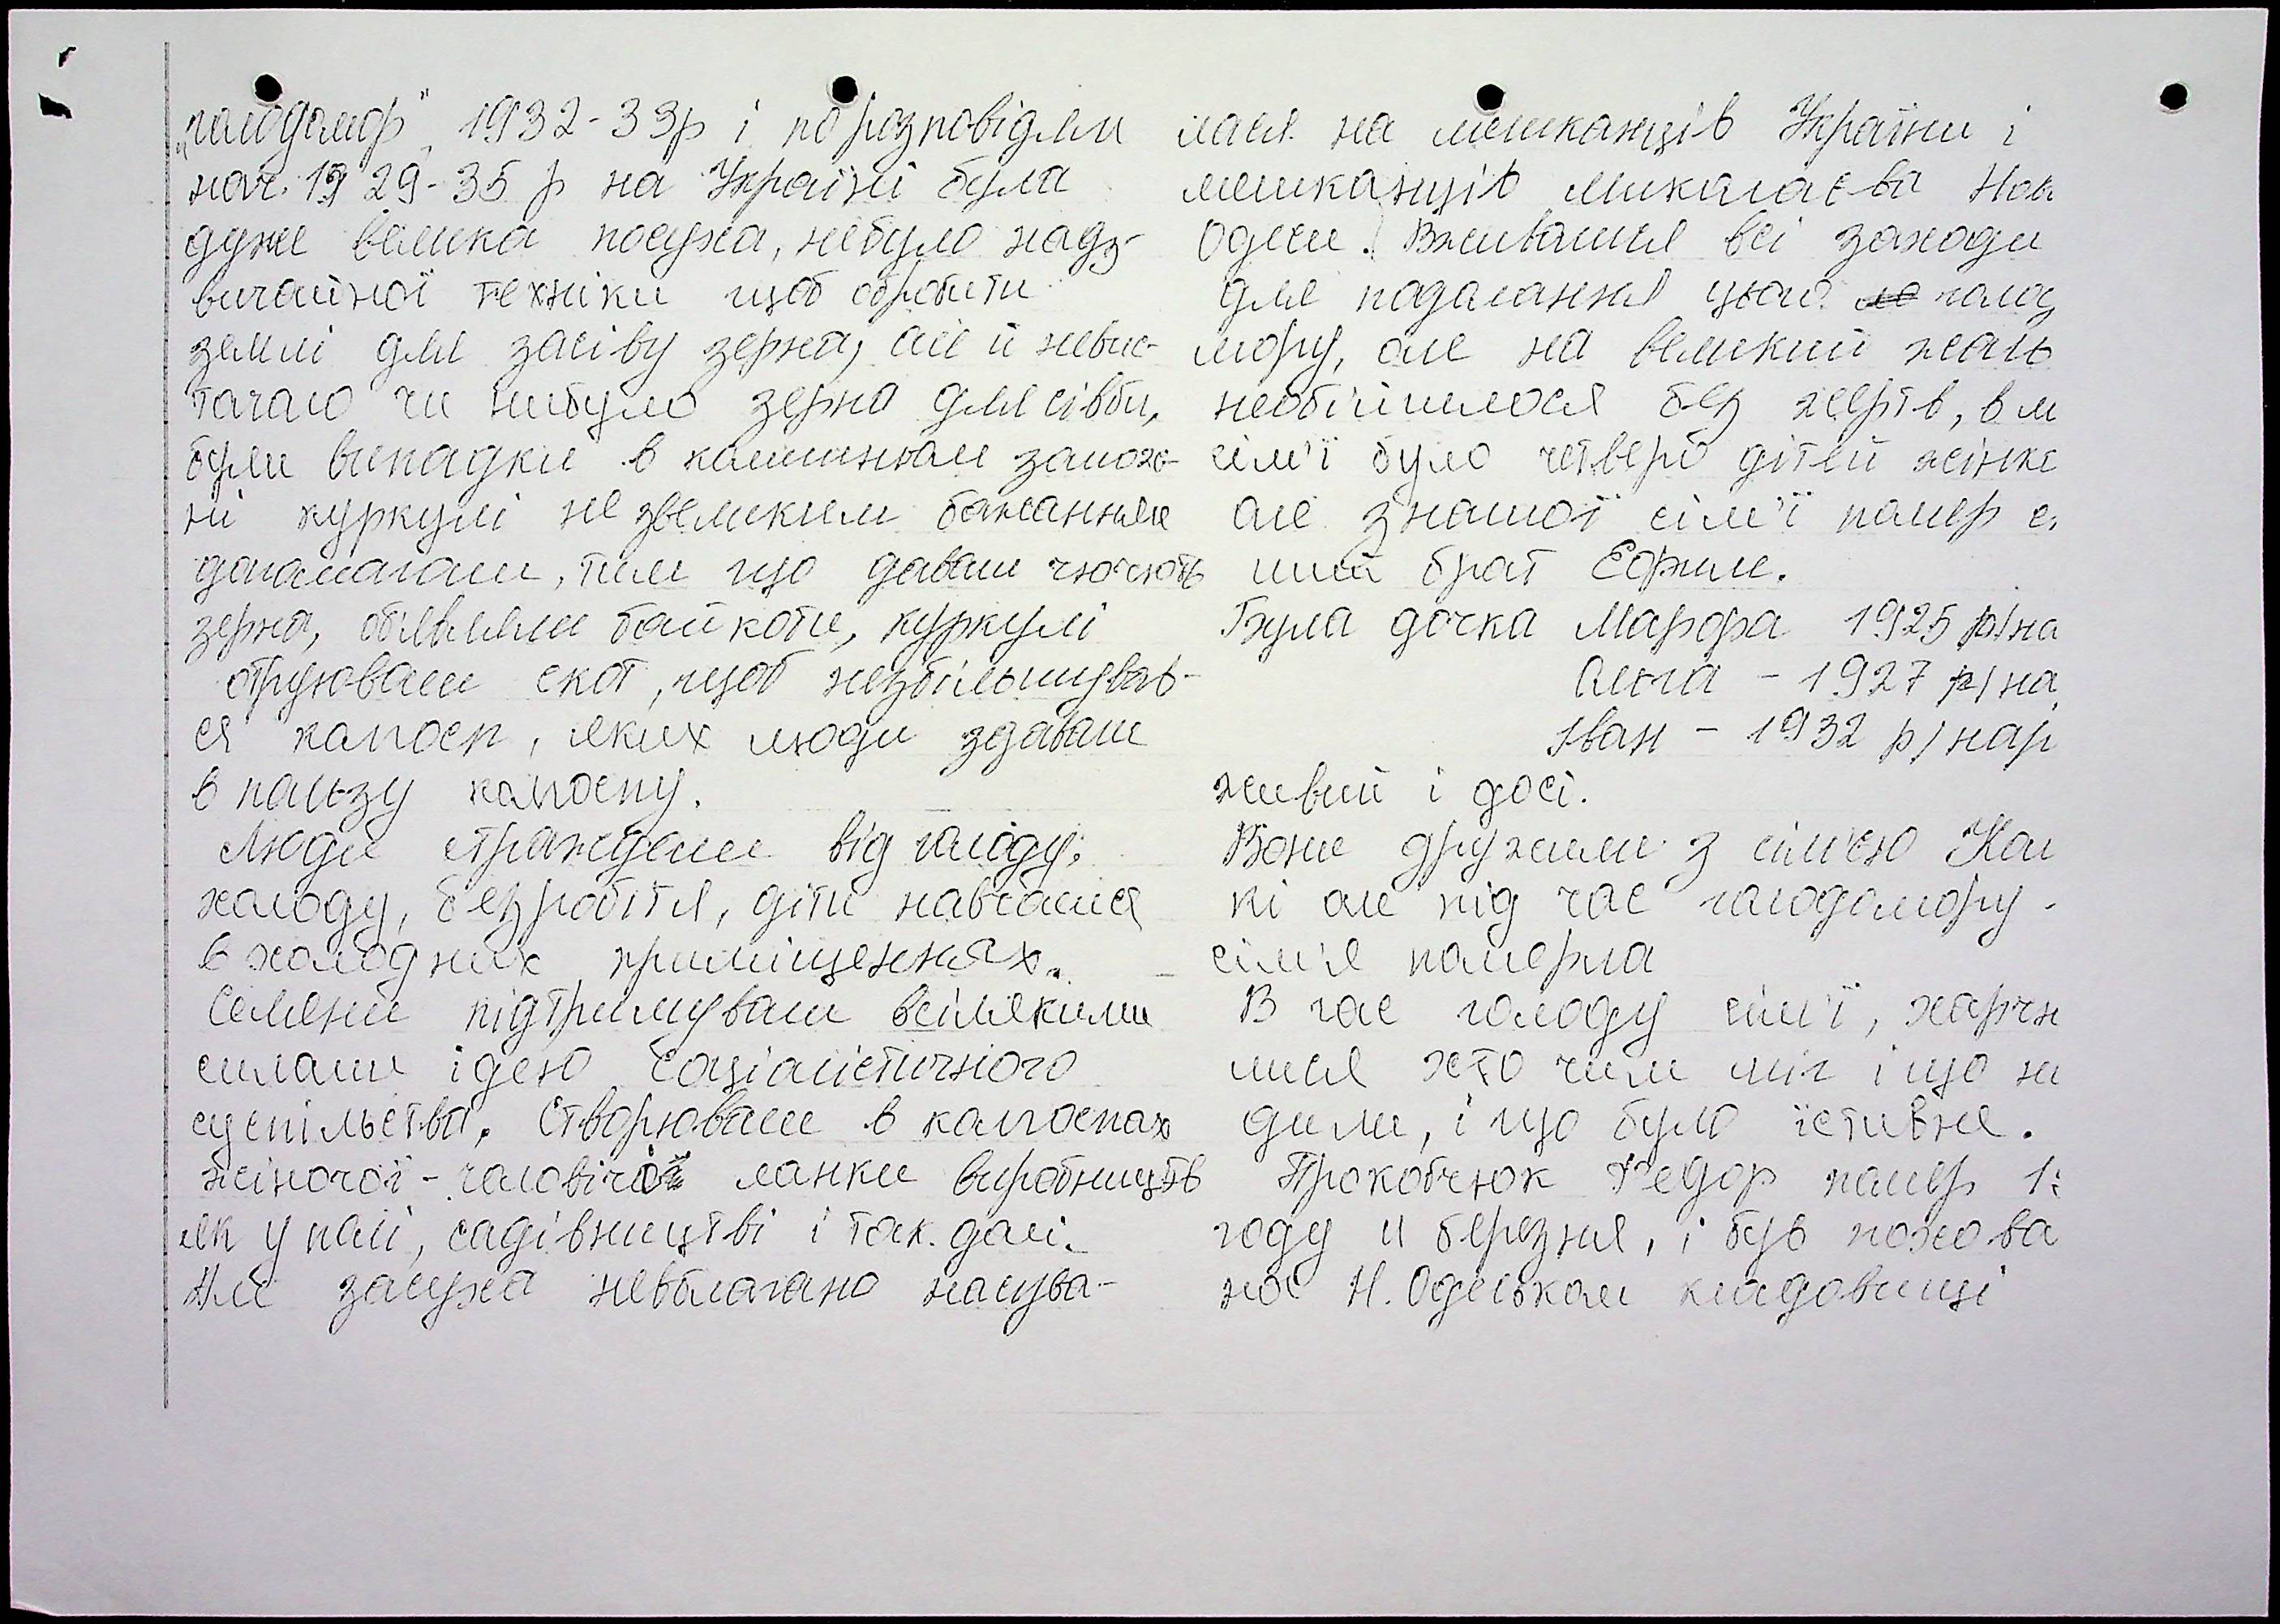 „голодомор" 1932-33р і по розповідям
поч. 1929-35 р на Україні була
дуже велика посуха, небуло надз-
вичайної техніки щоб обробити
землі для засіву зерна, але й невис-
тачало чи небуло зерна для сівби,
були випадки в колишньом замож-
ні куркулі не звеликим бажанням
допомагали, тим що давали
зерна, обявляли байкоти, куркулі
отруювали скот, щоб незбільшував-
ся колгосп, яких люди здавали
в пользу колгоспу.
Люди страждали від голоду,
холоду, безробіття, діти навчалися
в холодних приміщеннях.
Селяни підтримували всілякими
силами ідею Соціалістичного
суспільства. Створювали в колгоспах
жіночої - чоловічої ланки виробництв
як у полі, садівництві і так. далі.
Але засуха невблагано насува-
лася на мешканців України і
мешканців Миколаєва Нов
Одеси. Вживалися всі заходи
для подолання цього голод
мору, але на великий жаль
необійшлося без жертв, в м
сім'ї було четверо дітей жінка
але знашої сім'ї помер с
ший брат Єфим.
Була дочка Марфа 1925 р/на
Ольга - 1927 р/на
Іван - 1932 р/нар
живий і досі.
Вони дружили з сім'єю Кол
кі але під час голодомору -
сім'я померла
В час голоду сім'ї, харчу
лися хто чим міг і що на
дили, і що було їстивне.
Прокобчюк Федор помер 1
году 11 березня, і був похова
на Н. Одеськом кладовищі